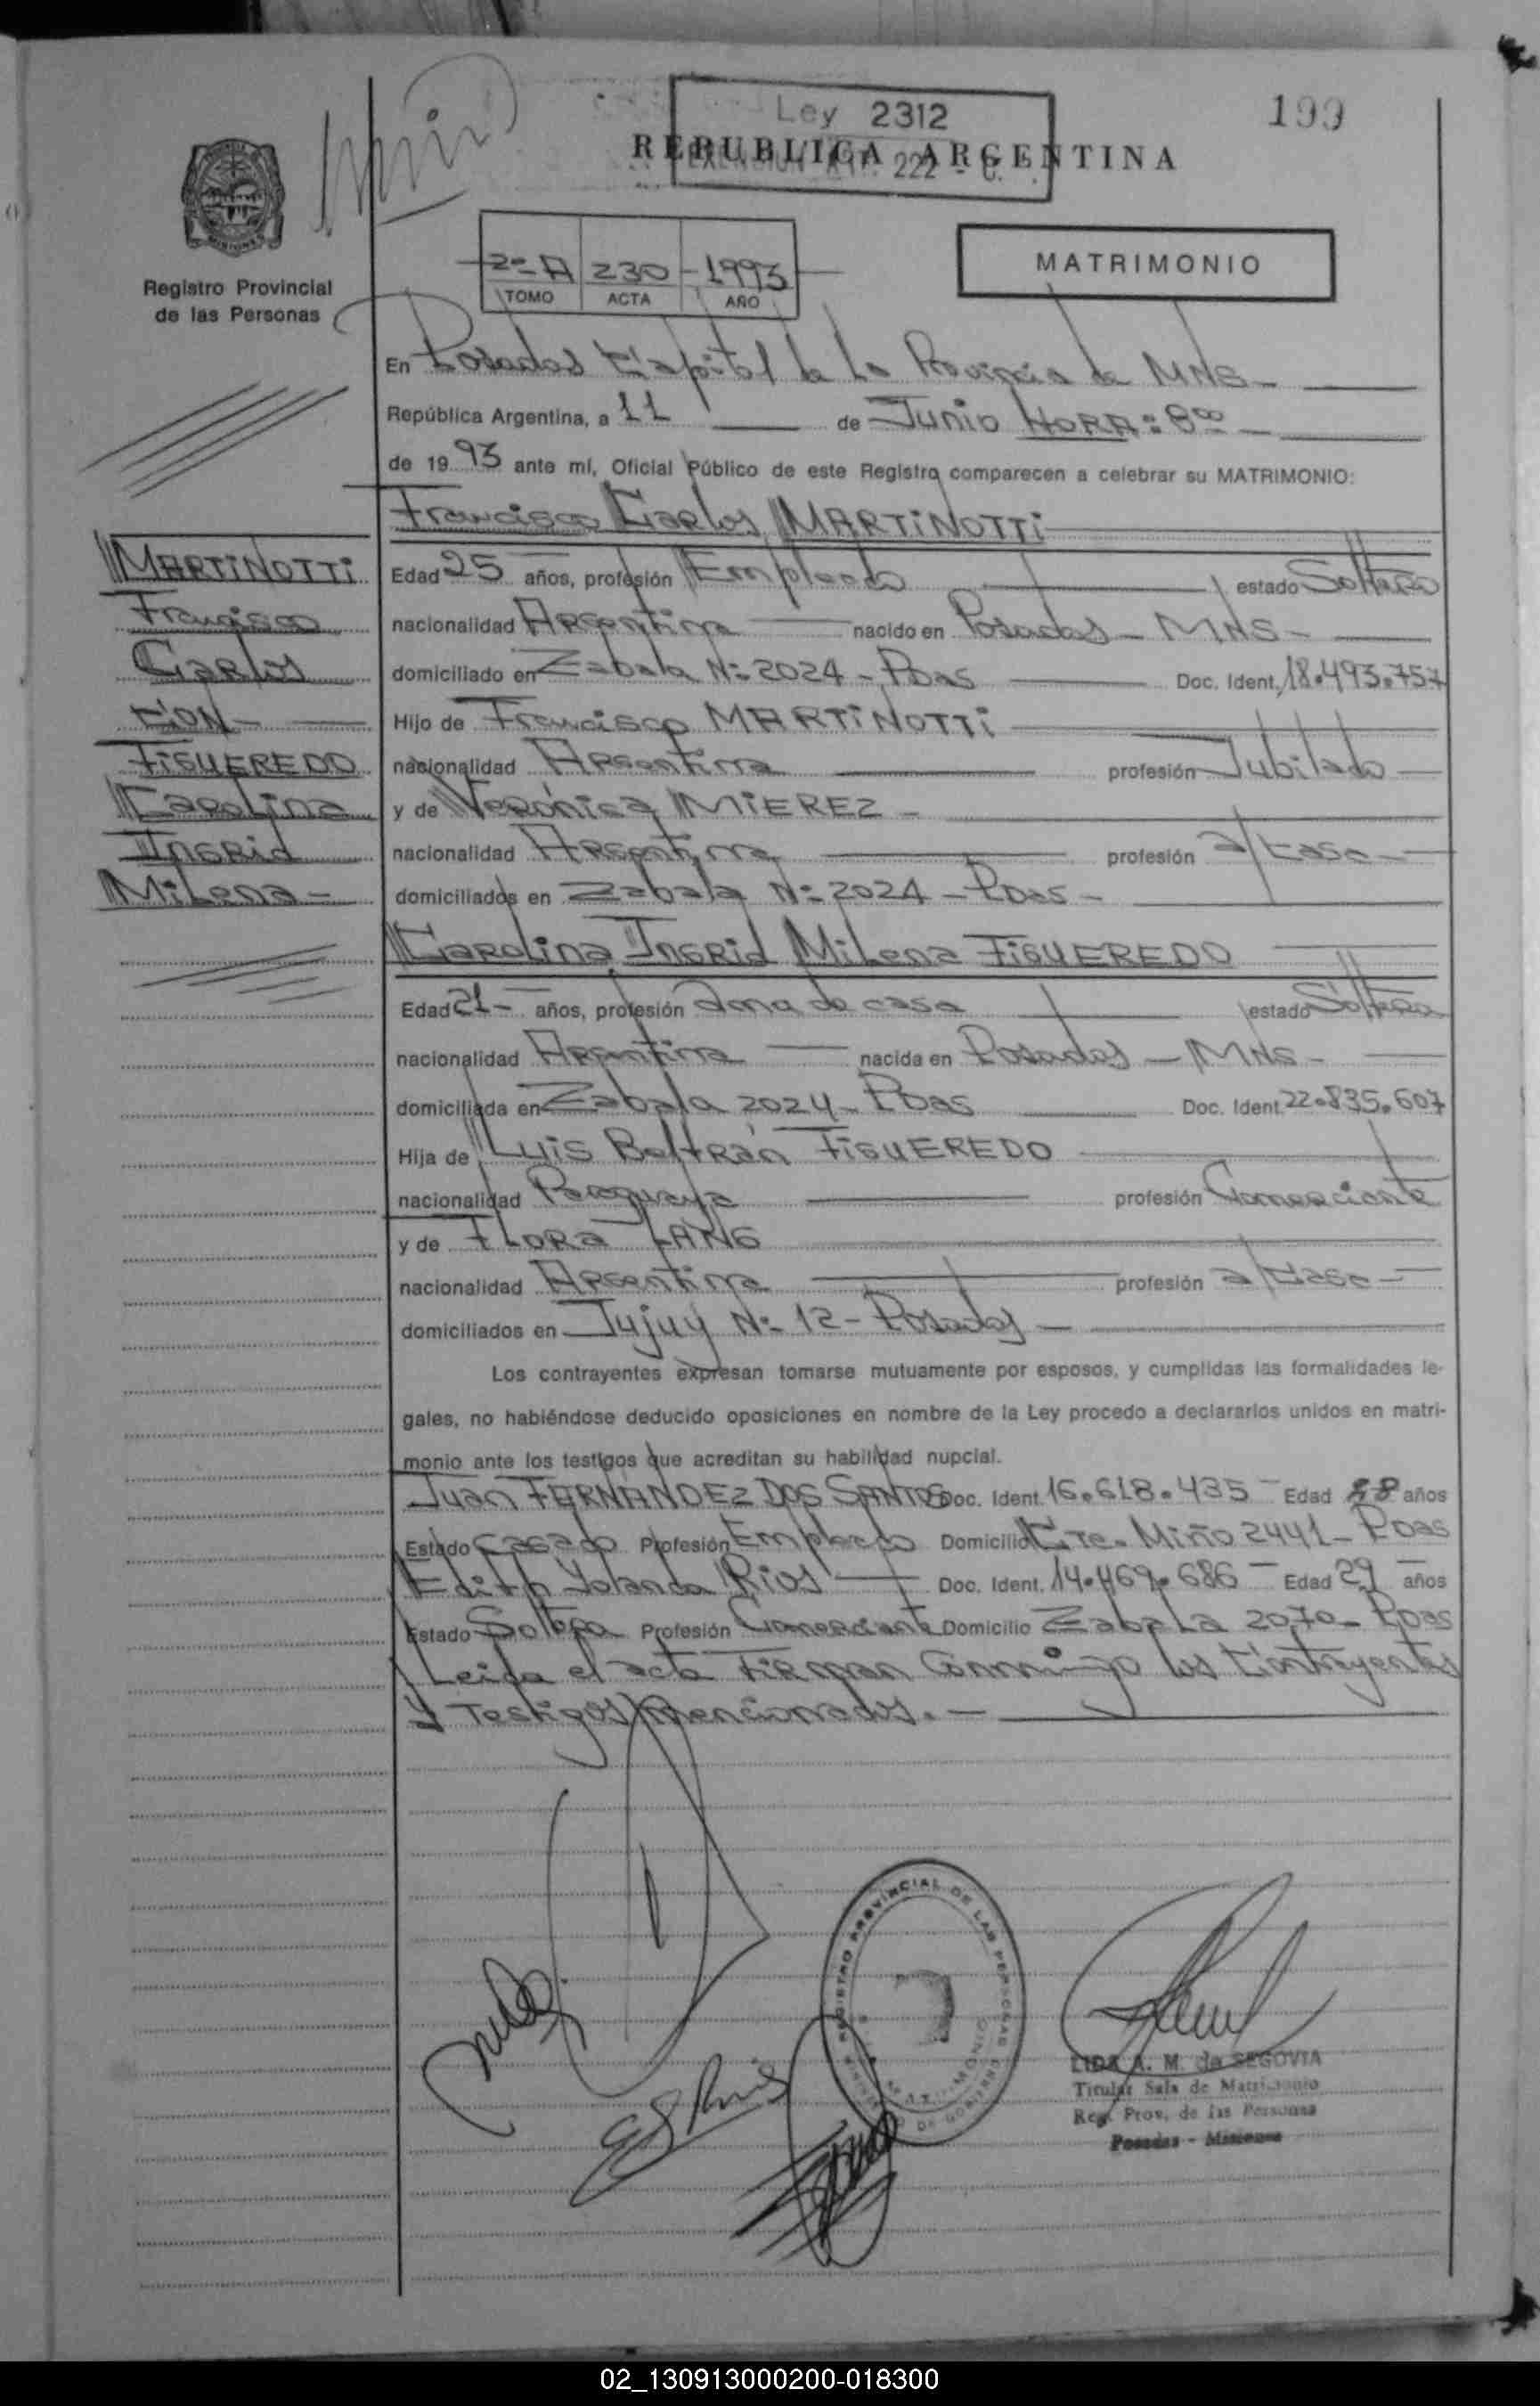 199
Ley 2312
REPUBLICA ARGENTINA
222 - C.
Registro Provincial
de las Personas
2º A 230 - 1993
TOMO ACTA AÑO
MATRIMONIO
En Posadas Capital de la Provincia de MNS -
República Argentina, a 11 de Junio HORA: 8ºº -
de 1993 ante mí, Oficial Público de este Registro comparecen a celebrar su MATRIMONIO:
Francisco Carlos MARTINOTTI
MARTINOTTI
Francisco
Carlos
CON -
FIGUEREDO
Carolina
Ingrid
Milena -
Edad 25 años, profesión Empleado estado Soltero
nacionalidad Argentina nacido en Posadas - MNS -
domiciliado en Zabala Nº 2024 - Pdas Doc. Ident. 18.493.757
Hijo de Francisco MARTINOTTI
nacionalidad Argentina profesión Jubilado
y de Verónica MIEREZ -
nacionalidad Argentina profesión a/casa -
domiciliados en Zabala Nº 2024 - Pdas -
Carolina Ingrid Milena FIGUEREDO
Edad 21 - años, profesión Ama de casa estado Soltera
nacionalidad Argentina nacida en Posadas - MNS -
domiciliada en Zabala 2024 - Pdas Doc. Ident. 22.835.607
Hija de Luis Beltrán FIGUEREDO
nacionalidad Paraguaya profesión Comerciante
y de Flora LANG
nacionalidad Argentina profesión a/casa -
domiciliados en Jujuy Nº 12 - Posadas -
Los contrayentes expresan tomarse mutuamente por esposos, y cumplidas las formalidades le-
gales, no habiéndose deducido oposiciones en nombre de la Ley procedo a declararlos unidos en matri-
monio ante los testigos que acreditan su habilidad nupcial.
Juan FERNANDEZ DOS SANTOS Doc. Ident. 16.618.435 - Edad años
Estado Casado Profesión Empleado Domicilio Cte. Miño 2441 - Pdas
Edith Yolanda Rios Doc. Ident. 14.469.686 - Edad 29 años
Estado Soltera Profesión Comerciante Domicilio Zabala 2070 - Pdas
Leida el acta Firman Conmigo los Contrayentes
y Testigos mencionados. -
REGISTRO PROVINCIAL DE LAS PERSONAS
MATRIMONIO
LIDA A. M. de SEGOVIA
Titular Sala de Matrimonio
Reg. Prov. de las Personas
Posadas - Misiones
02_130913000200-018300